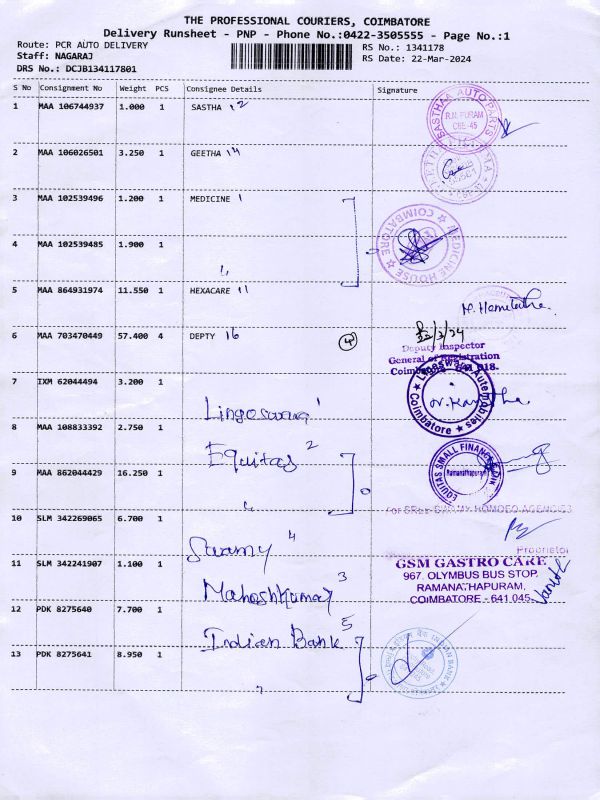 THE PROFESSIONAL COURIERS, COIMBATORE
Delivery Runsheet - PNP - Phone No.:0422-3505555 - Page No.:1
Route: PCR AUTO DELIVERY
RS No.: 1341178
Staff: NAGARAJ
RS Date: 22-Mar-2024
DRS No.: DCJB134117801
S No Consignment No Weight PCS Consignee Details Signature
1 MAA 106744937 1.000 1 SASTHA 12
SASTHAA AUTO PARTS
R.M. PURAM
CBE-45
2 MAA 106026501 3.250 1 GEETHA 14
3 MAA 102539496 1.200 1 MEDICINE 1
MEDICINE HOUSE ★ COIMBATORE ★
4 MAA 102539485 1.900 1
5 MAA 864931974 11.550 1 HEXACARE 11
6 MAA 703470449 57.400 4 DEPTY 16 4
Deputy Inspector
General of Registration
7 IXM 62044494 3.200 1 Lingeswara 1
Lingeswara Automobiles
★ Coimbatore ★
8 MAA 108833392 2.750 1 Equitas 2
EQUITAS SMALL FINANCE
Ramanathapuram
9 MAA 862044429 16.250 1
For SREE SWAMY HOMOEO AGENCIES
Proprietor
10 SLM 342269065 6.700 1 Swamy 4
11 SLM 342241907 1.100 1 Maheshkumar 3
GSM GASTRO CARE
967, OLYMBUS BUS STOP,
RAMANATHAPURAM,
COIMBATORE - 641 045.
12 PDK 8275640 7.700 1 Indian Bank 5
INDIAN BANK
13 PDK 8275641 8.950 1